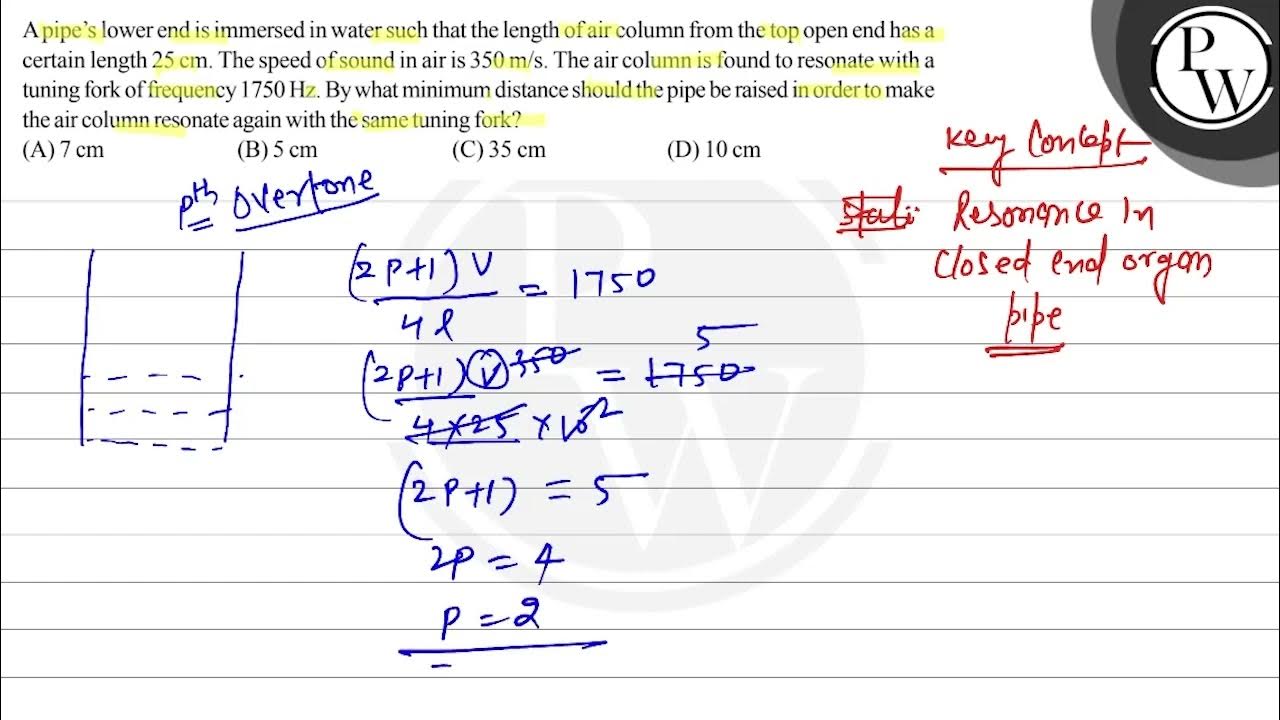 A pipe's lower end is immersed in water such that the length of air column from the top open end has a
certain length 25 cm. The speed of sound in air is 350 m/s. The air column is found to resonate with a
tuning fork of frequency 1750 Hz. By what minimum distance should the pipe be raised in order to make
the air column resonate again with the same tuning fork?
(A) 7 cm (B) 5 cm (C) 35 cm (D) 10 cm
P W
Key Concept
Pth overtone
Resonance In
closed end organ
pipe
(2P+1) V / 4l = 1750
(2P+1) V 350 / 4×25 × 10-2 = 1750 5
(2P+1) = 5
2P = 4
P = 2